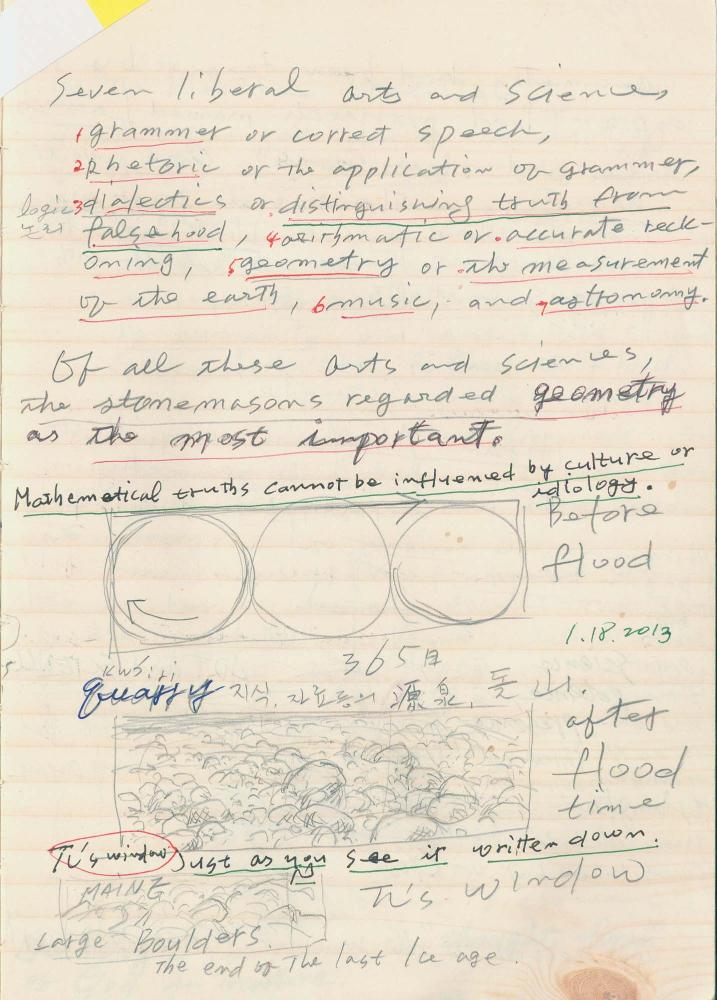 Seven liberal arts and science,
1 grammer or correct speech,
2 rhetoric or the application of grammer,
logic 3 dialectics or distinguishing truth from
논리 falsehood, 4 arithmatic or accurate reck-
oning, 5 geometry or the measurement
of the earth, 6 music, and 7 astronomy.
Of all these arts and sciences,
the stonemasons regarded geometry
as the most important.
Mathemetical truths cannot be influenced by culture or
idiology.
Before
flood
1.18.2013
365日
quarry 지식, 자료등의 源泉, 돌山.
after
flood
time
Tu's window Just as you see it written down.
MAINE
Tu's window
Large Boulders.
The end of The last Ice age.